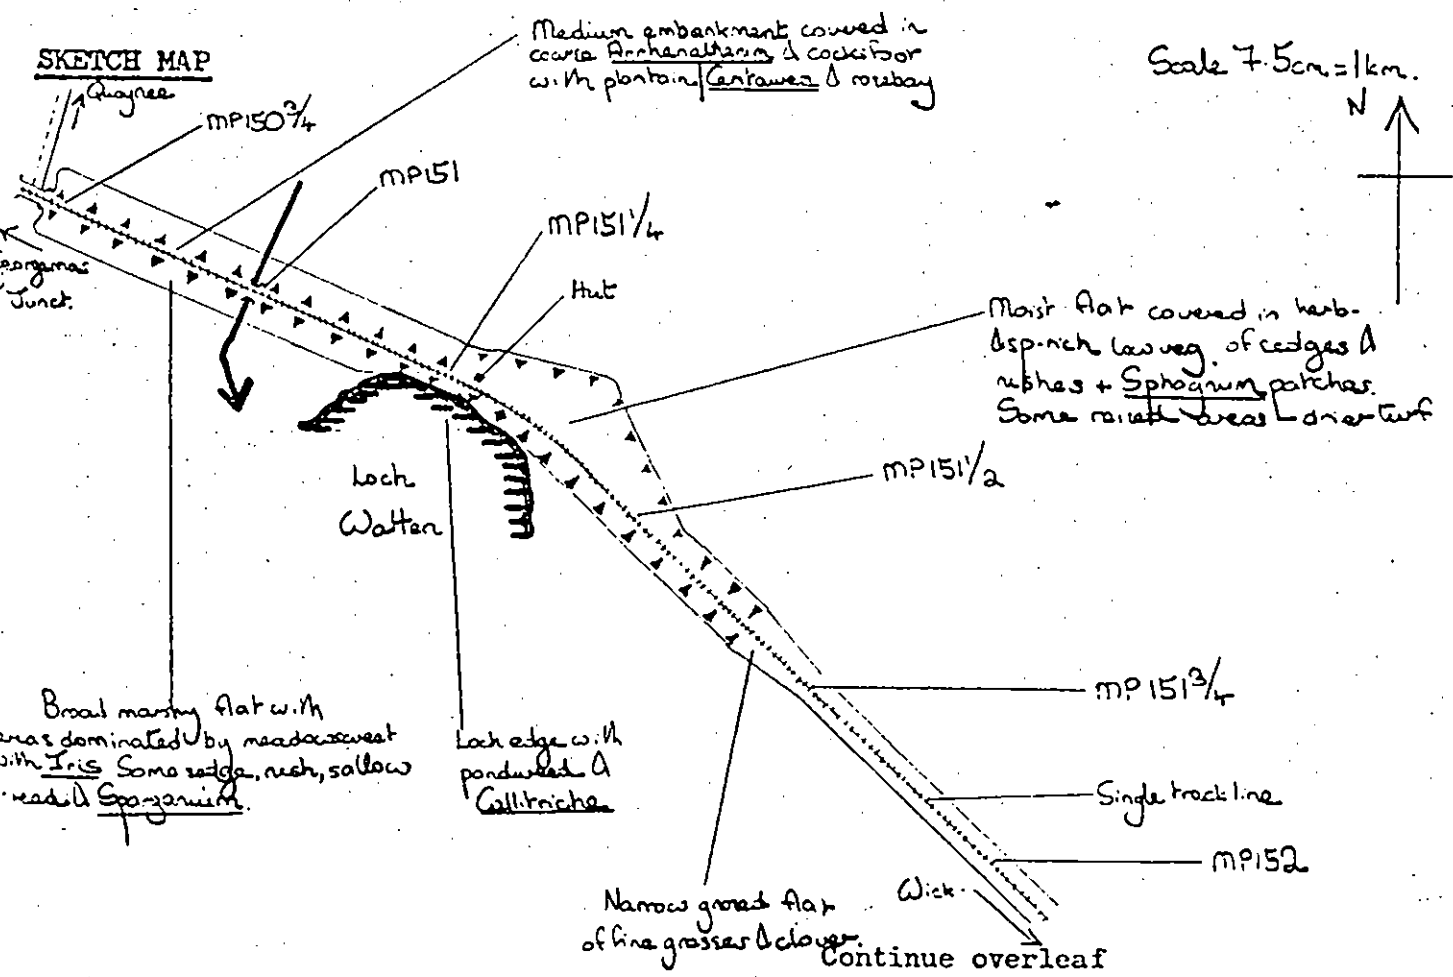 SKETCH MAP
Quagree
MP150¾
Medium embankment covered in
coarse Arrhenatherum & cocksfoot
with plantain, Centaurea & rosebay
Scale 7.5cm = 1km.
N
MP151
MP151¼
Hut
Georgemas
Junct.
Moist flat covered in herb-
& sp-rich low veg. of sedges &
rushes + Sphagnum patches.
Some raised areas drier turf
MP151½
Loch
Watten
MP151¾
Broad marshy flat with
areas dominated by meadowsweet
with Iris Some sedge, rush, sallow
reed & Sparganium.
Loch edge with
pondweed &
Callitriche
Single track line
MP152
Narrow grazed flat
of fine grasses & clover.
Wick.
Continue overleaf